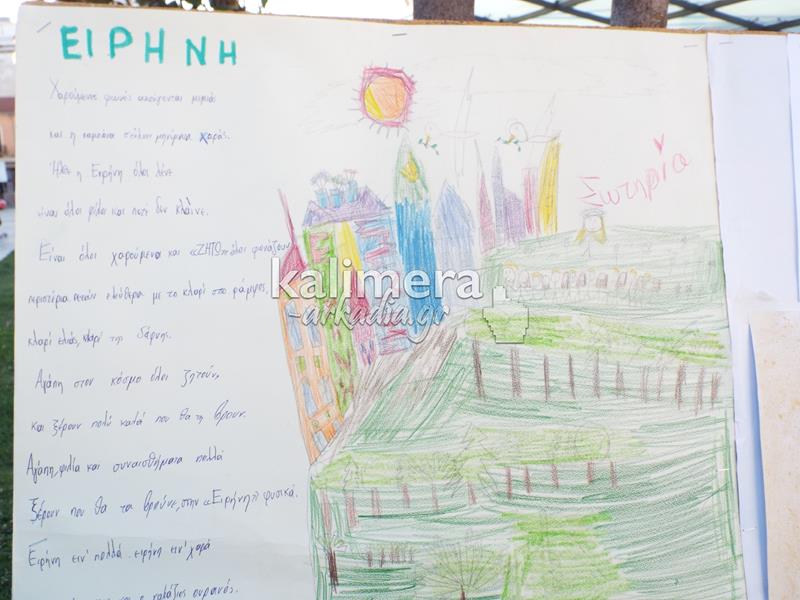 ΕΙΡΗΝΗ
Χαρούμενες φωνές ακούγονται μεριάς
και η καμπάνα στέλνει μηνύματα χαράς.
Ήλθε η Ειρήνη όλοι λένε
είναι όλοι φίλοι και ποτέ δεν κλαίνε.
Είναι όλοι χαρούμενοι και «ΖΗΤΩ» όλοι φωνάζουν
περιστέρια πετούν ελεύθερα με το κλαρί στο ράμφος,
κλαρί ελιάς, κλαρί της δάφνης.
Αγάπη στον κόσμο όλοι ζητούν,
και ξέρουν πολύ καλά που θα τη βρουν.
Αγάπη, φιλία και συναισθήματα πολλά
ξέρουν που θα τα βρούνε, στην «Ειρήνη» φυσικά.
Ειρήνη ειν' πολλά ειρήνη ειν' χαρά
και ο γαλάζιος ουρανός.
Σωτηρία
kalimera
-arkadia.gr